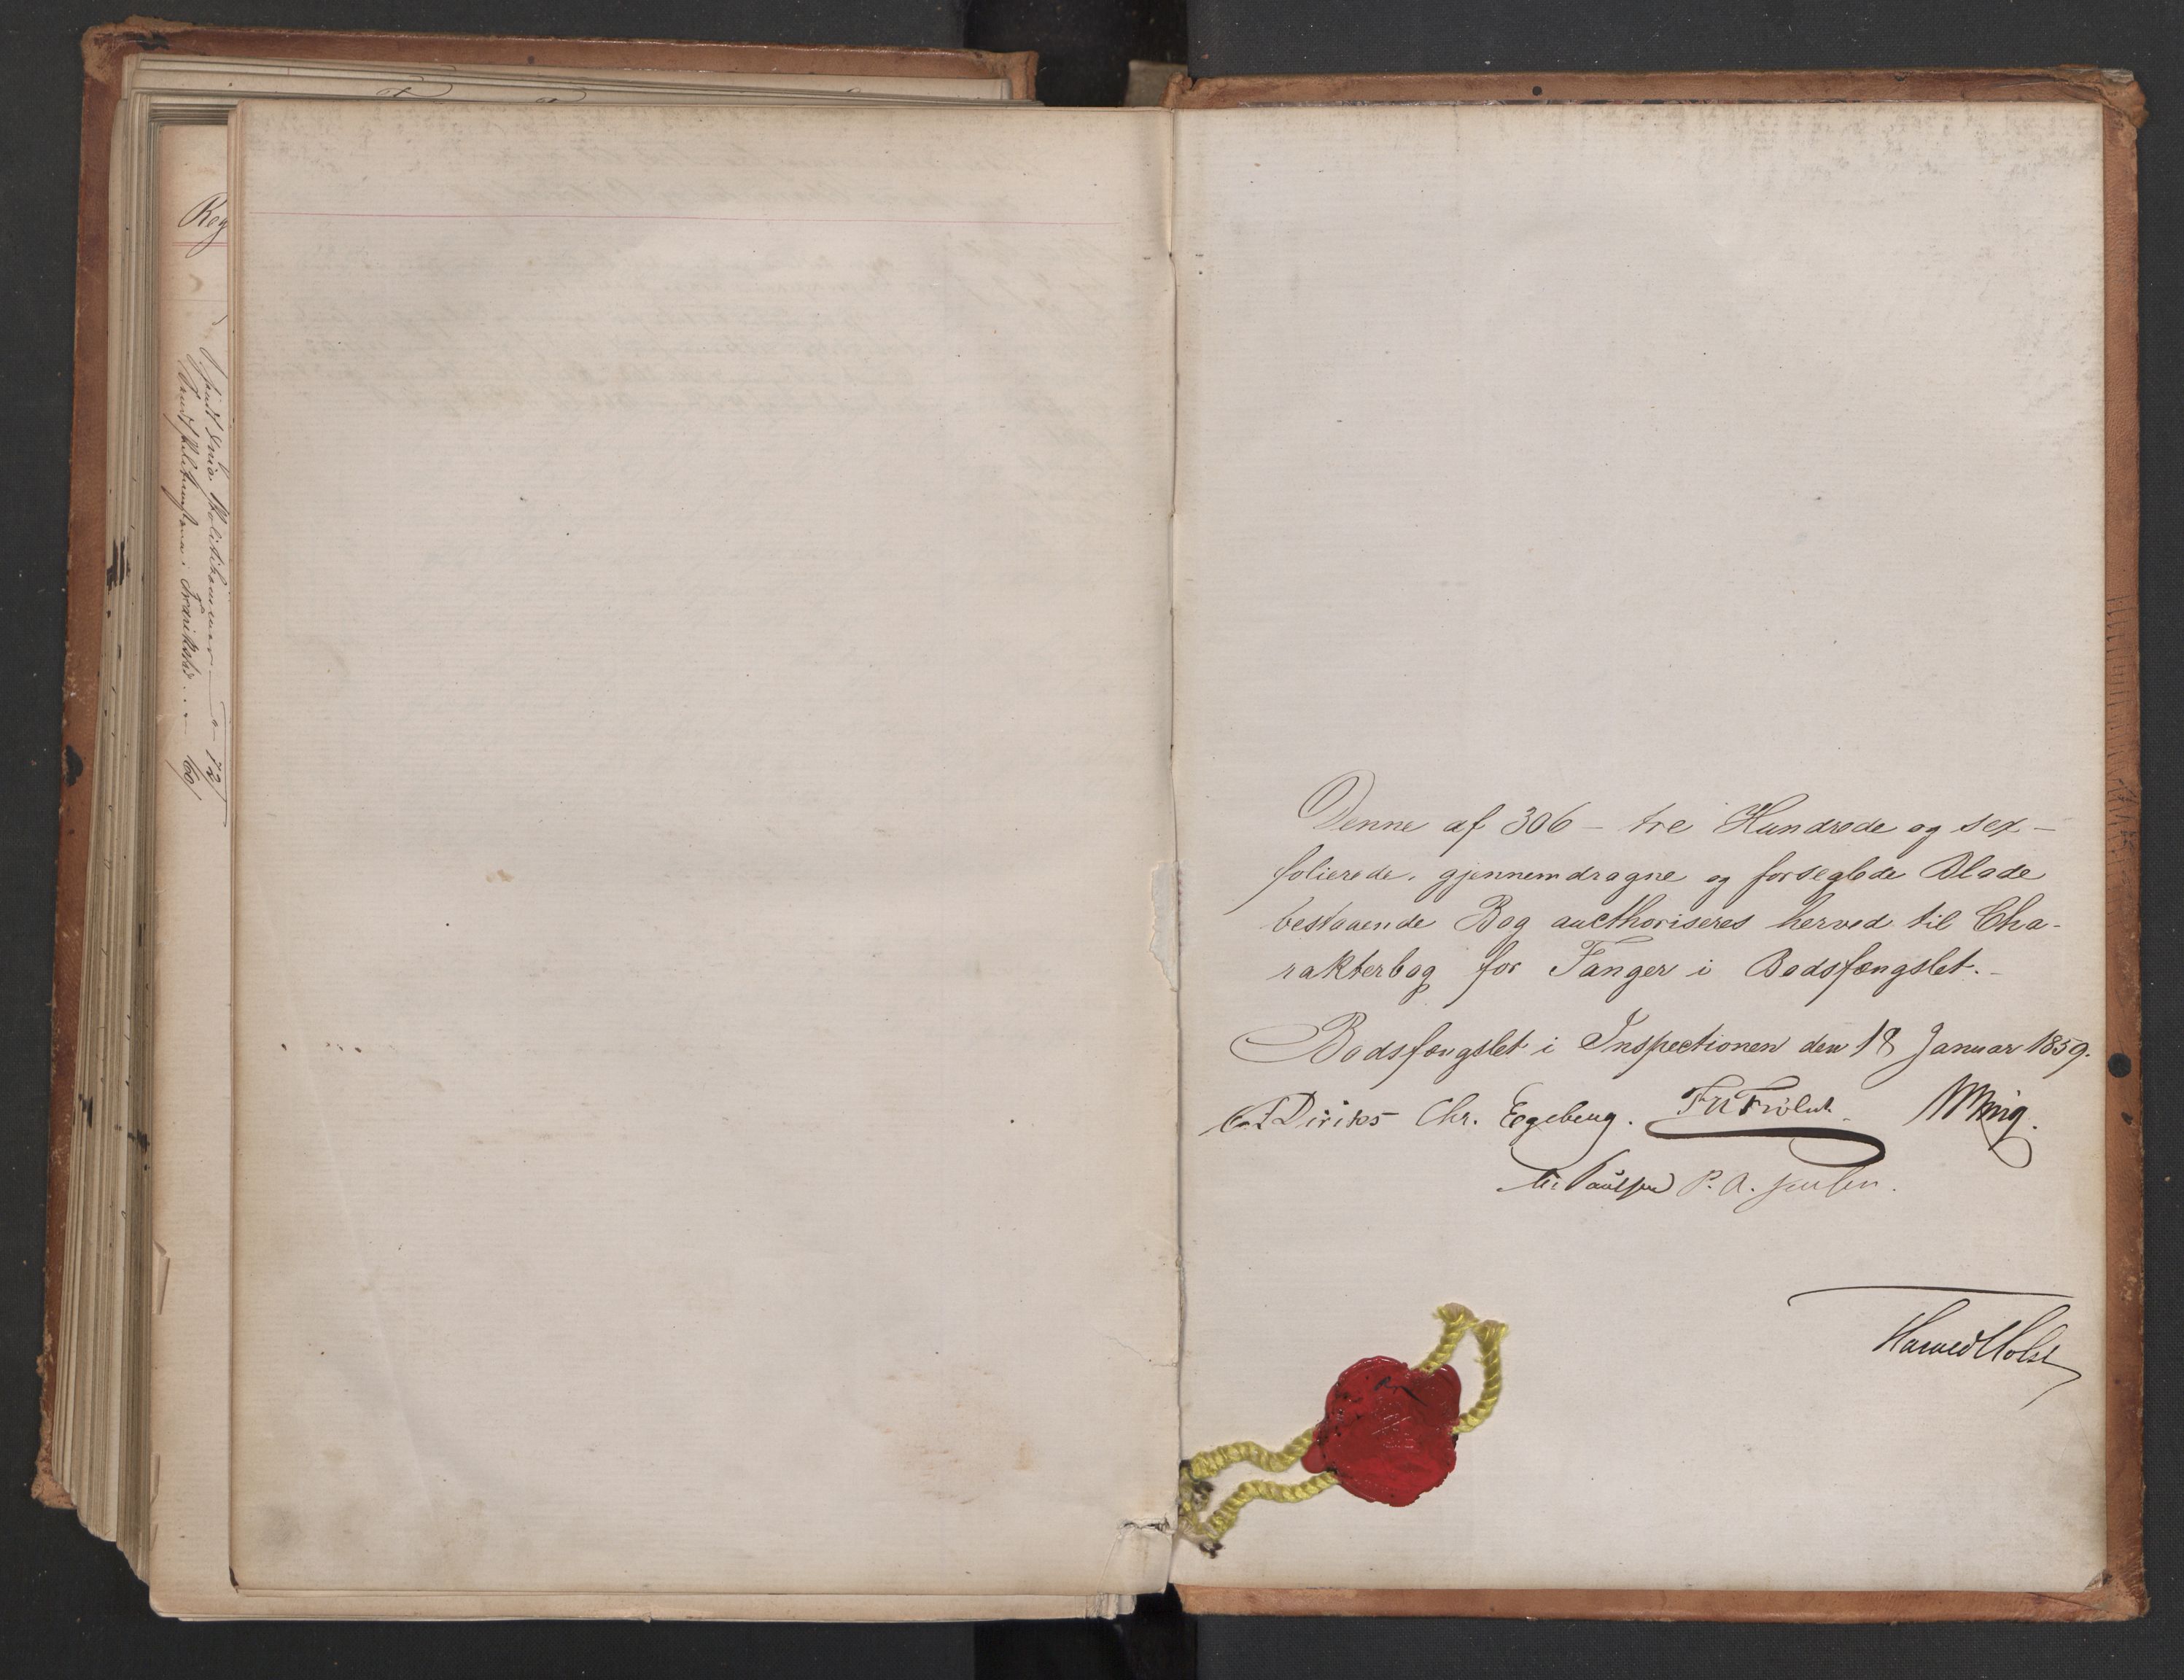 Reg
Denne af 306 – tre Hundrede og sex –
folierede, gjennemdragne og forseglede Blade
bestaaende Bog aucthoriseres herved til Cha-
rakterbog for Fanger i Bodsfængslet. –
Bodsfængslet i Inspectionen den 18 Januar 1859.
C. F. Diriks Chr. Egeberg. Fr. Frölich.
Paulsen P. A. Jensen.
Harald Holst
72
60